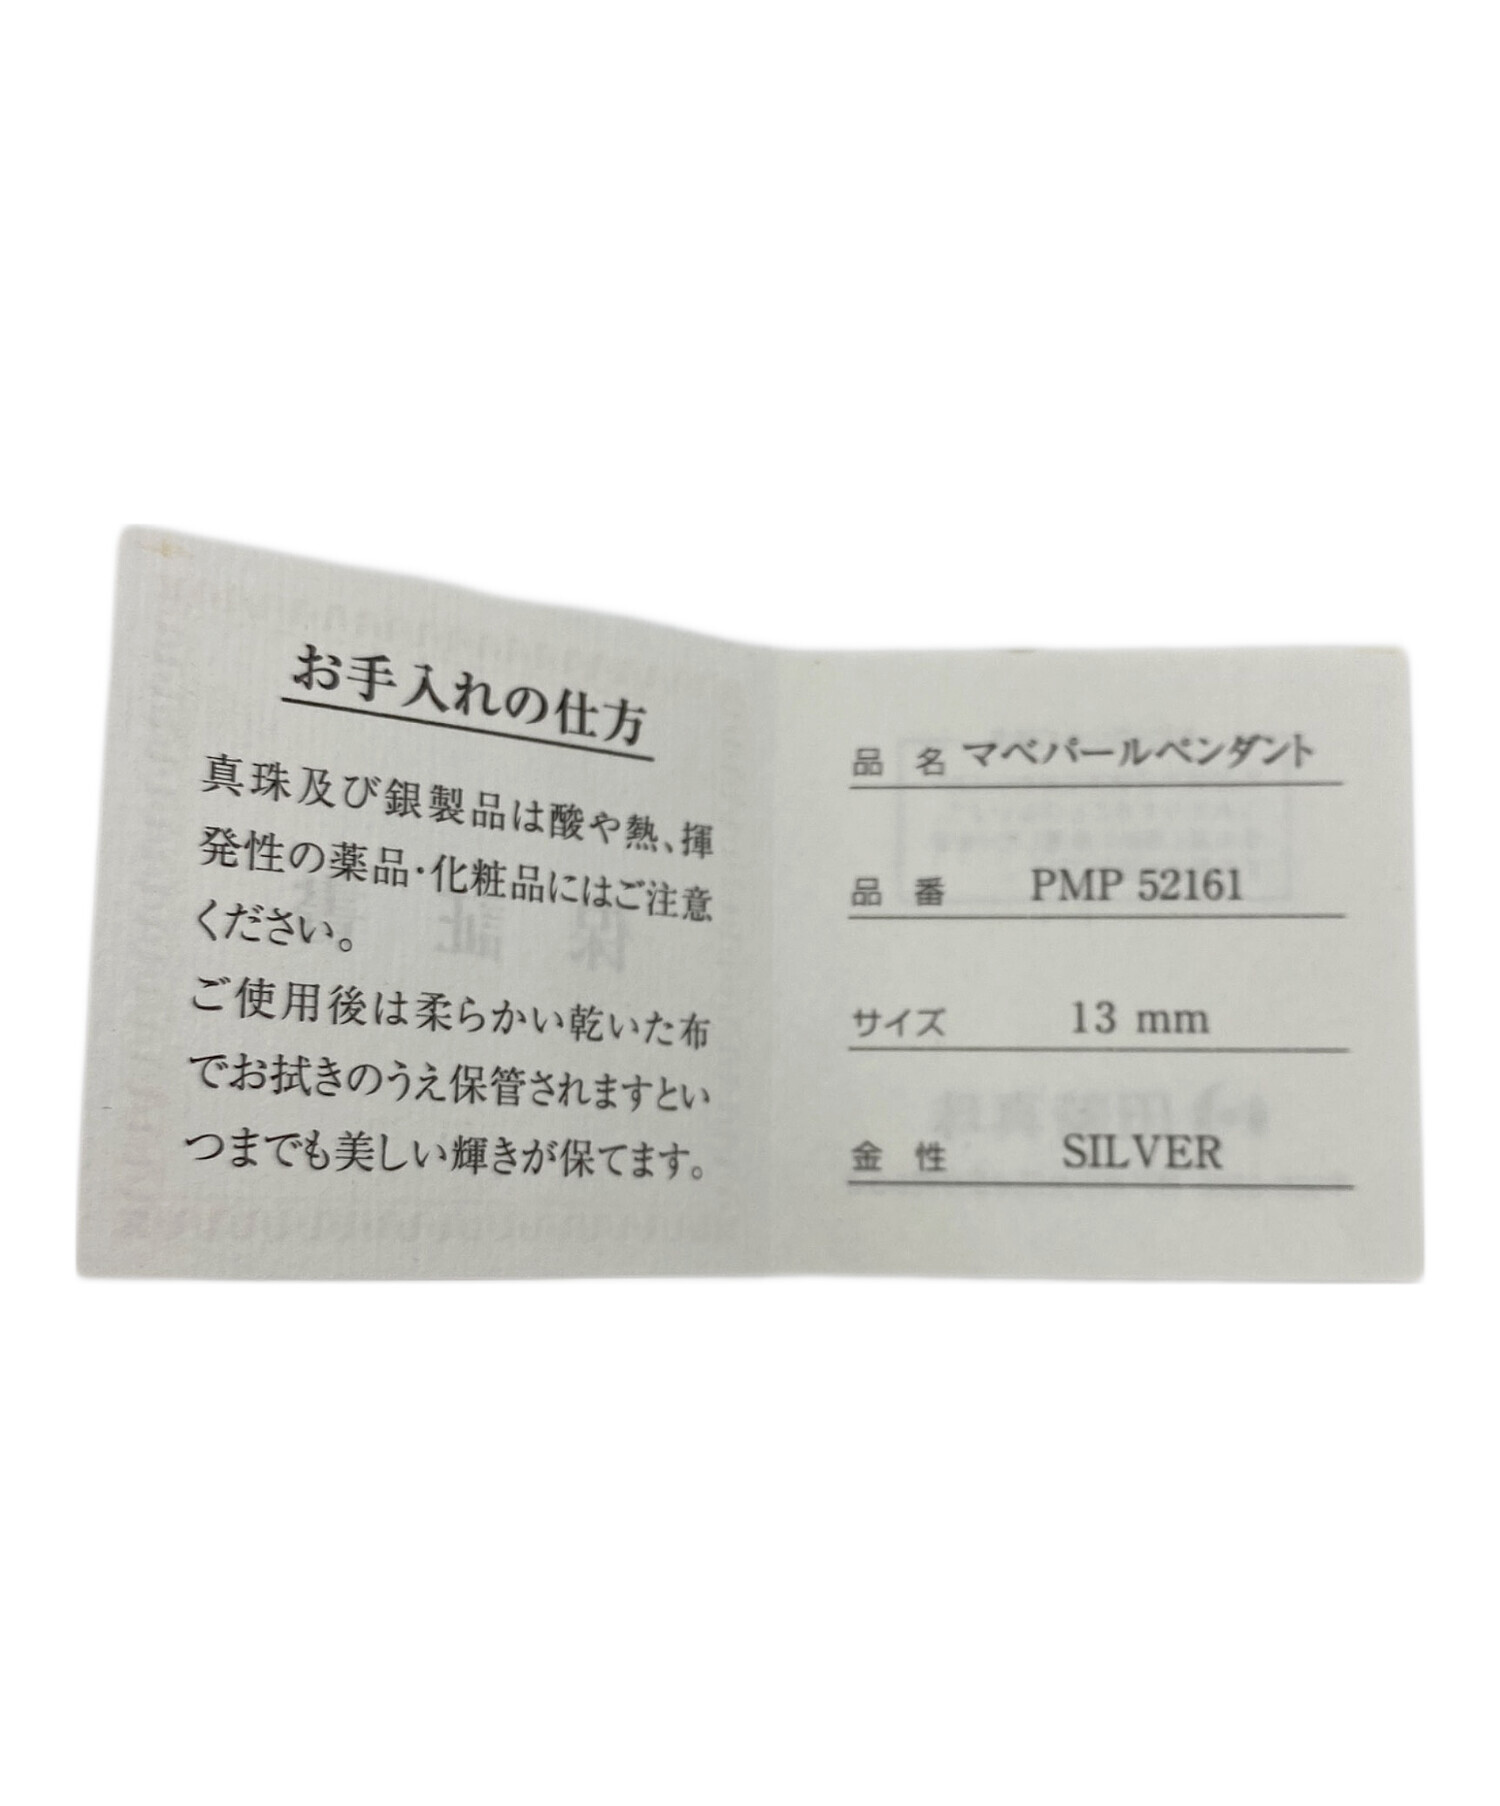 お手入れの仕方
真珠及び銀製品は酸や熱、揮
発性の薬品・化粧品にはご注意
ください。
ご使用後は柔らかい乾いた布
でお拭きのうえ保管されますとい
つまでも美しい輝きが保てます。
品名 マベパールペンダント
品番 PMP 52161
サイズ 13 mm
金性 SILVER